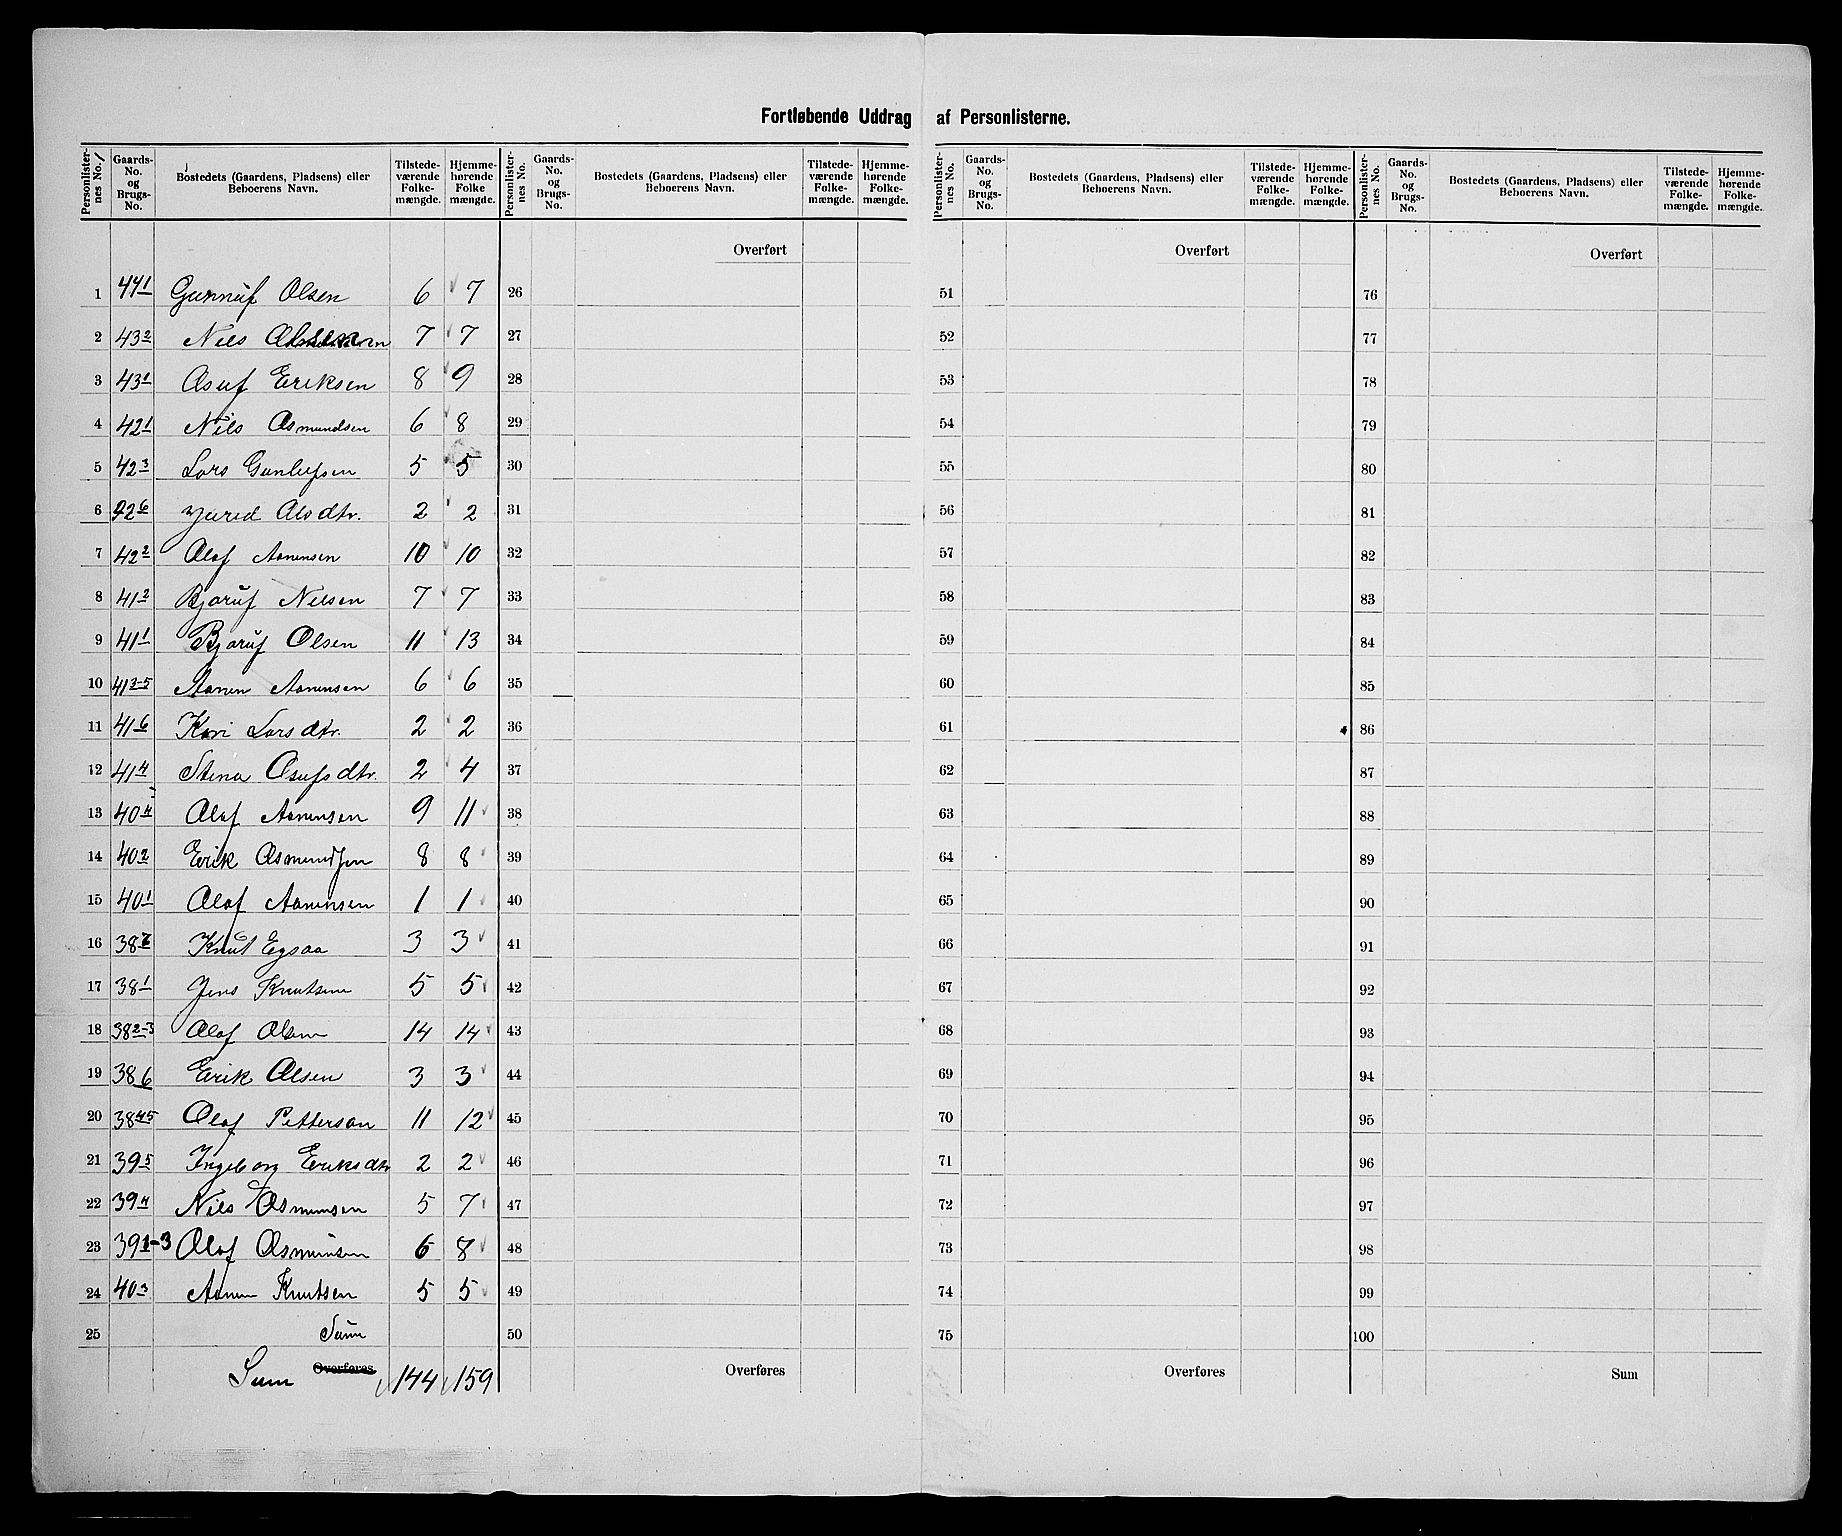 Fortløbende Uddrag af Personlisterne.
Personlisternes No. Gaards-No. og Brugs-No. Bostedets (Gaardens, Pladsens) eller Beboerens Navn. Tilstedeværende Folkemængde. Hjemmehørende Folkemængde. Personlisternes No. Gaards-No. og Brugs-No. Bostedets (Gaardens, Pladsens) eller Beboerens Navn. Tilstedeværende Folkemængde. Hjemmehørende Folkemængde. Personlisternes No. Gaards-No. og Brugs-No. Bostedets (Gaardens, Pladsens) eller Beboerens Navn. Tilstedeværende Folkemængde. Hjemmehørende Folkemængde. Personlisternes No. Gaards-No. og Brugs-No. Bostedets (Gaardens, Pladsens) eller Beboerens Navn. Tilstedeværende Folkemængde. Hjemmehørende Folkemængde.
Overført Overført Overført
1 44 1 Gunnuf Olsen 6 7 26 51 76
2 43 2 Nils 7 7 27 52 77
3 43 1 Asuf Eriksen 8 9 28 53 78
4 42 1 Nils Osmundsen 6 8 29 54 79
5 42 3 Lars Gunlufsen 5 5 30 55 80
6 42 6 2 2 31 56 81
7 42 2 Olof Aanensen 10 10 32 57 82
8 41 2 Bjoruf Nilsen 7 7 33 58 83
9 41 1 Bjoruf Olsen 11 13 34 59 84
10 41 3-5 Aanen Aanensen 6 6 35 60 85
11 41 6 Kari Larsdtr. 2 2 36 61 86
12 41 4 Stina Osufsdtr. 2 4 37 62 87
13 40 4 Olof Aanensen 9 11 38 63 88
14 40 2 Erik Osmundsen 8 8 39 64 89
15 40 1 Olof Aanensen 1 1 40 65 90
16 38 7 Knut Egsaa 3 3 41 66 91
17 38 1 Jens Knutsen 5 5 42 67 92
18 38 2-3 Olof Olsen 14 14 43 68 93
19 38 6 Erik Olsen 3 3 44 69 94
20 38 4-5 Olof Petterson 11 12 45 70 95
21 39 5 Ingeborg Eriksdtr 2 2 46 71 96
22 39 4 Nils Osmunsen 5 7 47 72 97
23 39 1-3 Olof Osmunsen 6 8 48 73 98
24 40 3 Aanen Knutsen 5 5 49 74 99
25 Sum 50 75 100
Sum Overføres 144 159 Overføres Overføres Sum